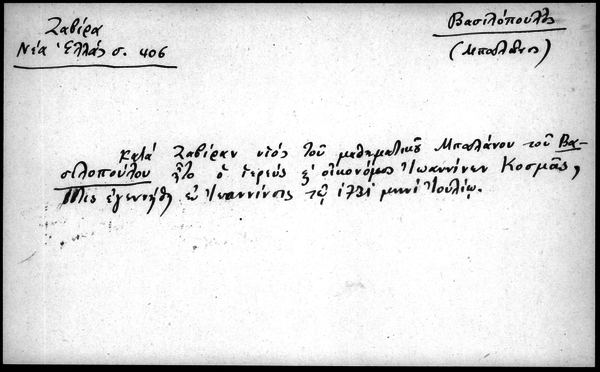 Ζαβίρα
Νέα Ἑλλάς σ. 406
Βασιλόπουλος
(Μπαλάνος)
Κατά Ζαβίραν υἱός τοῦ μαθηματικοῦ Μπαλάνου τοῦ Βα-
σιλοπούλου ἦτο ὁ ἱερεύς καί οἰκονόμος Ἰωαννίνων Κοσμᾶς,
ὅστις ἐγεννήθη ἐν Ἰωαννίνοις τῷ 1731 μηνί Ἰουλίῳ.